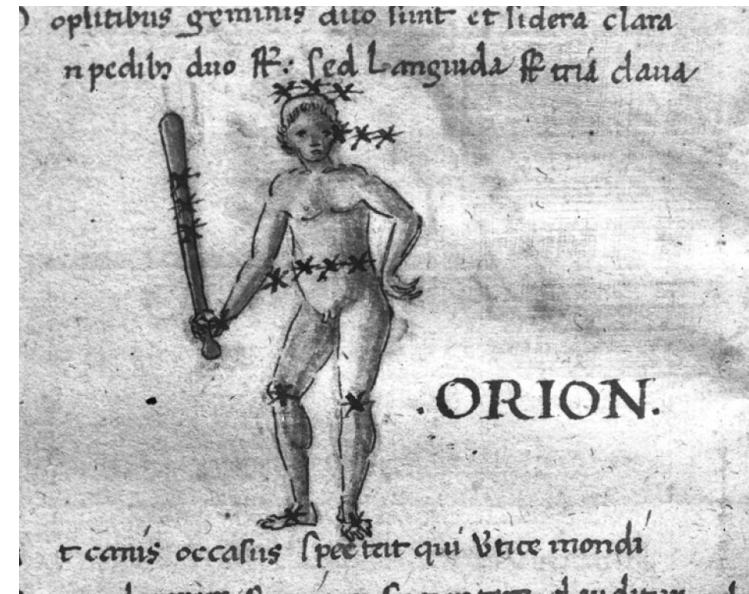 oplitibus geminis duo sunt et sidera clara
n pedibꝫ duo sꝉt: sed Languida sꝉt tria claua
.ORION.
t canis occasus spectat qui Vtice mondi